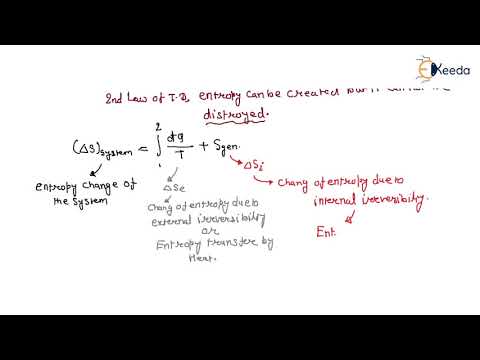 EKeeda
2nd Law of T.D, entropy can be created
distroyed.
(ΔS)system = ∫₁² dq/T + Sgen.
ΔSe
ΔSi
entropy change of
the System
Chang of entropy due to
external irreversibility
or
Entropy transfer by
Heat.
Chang of entropy due to
internal irreversibility.
Ent